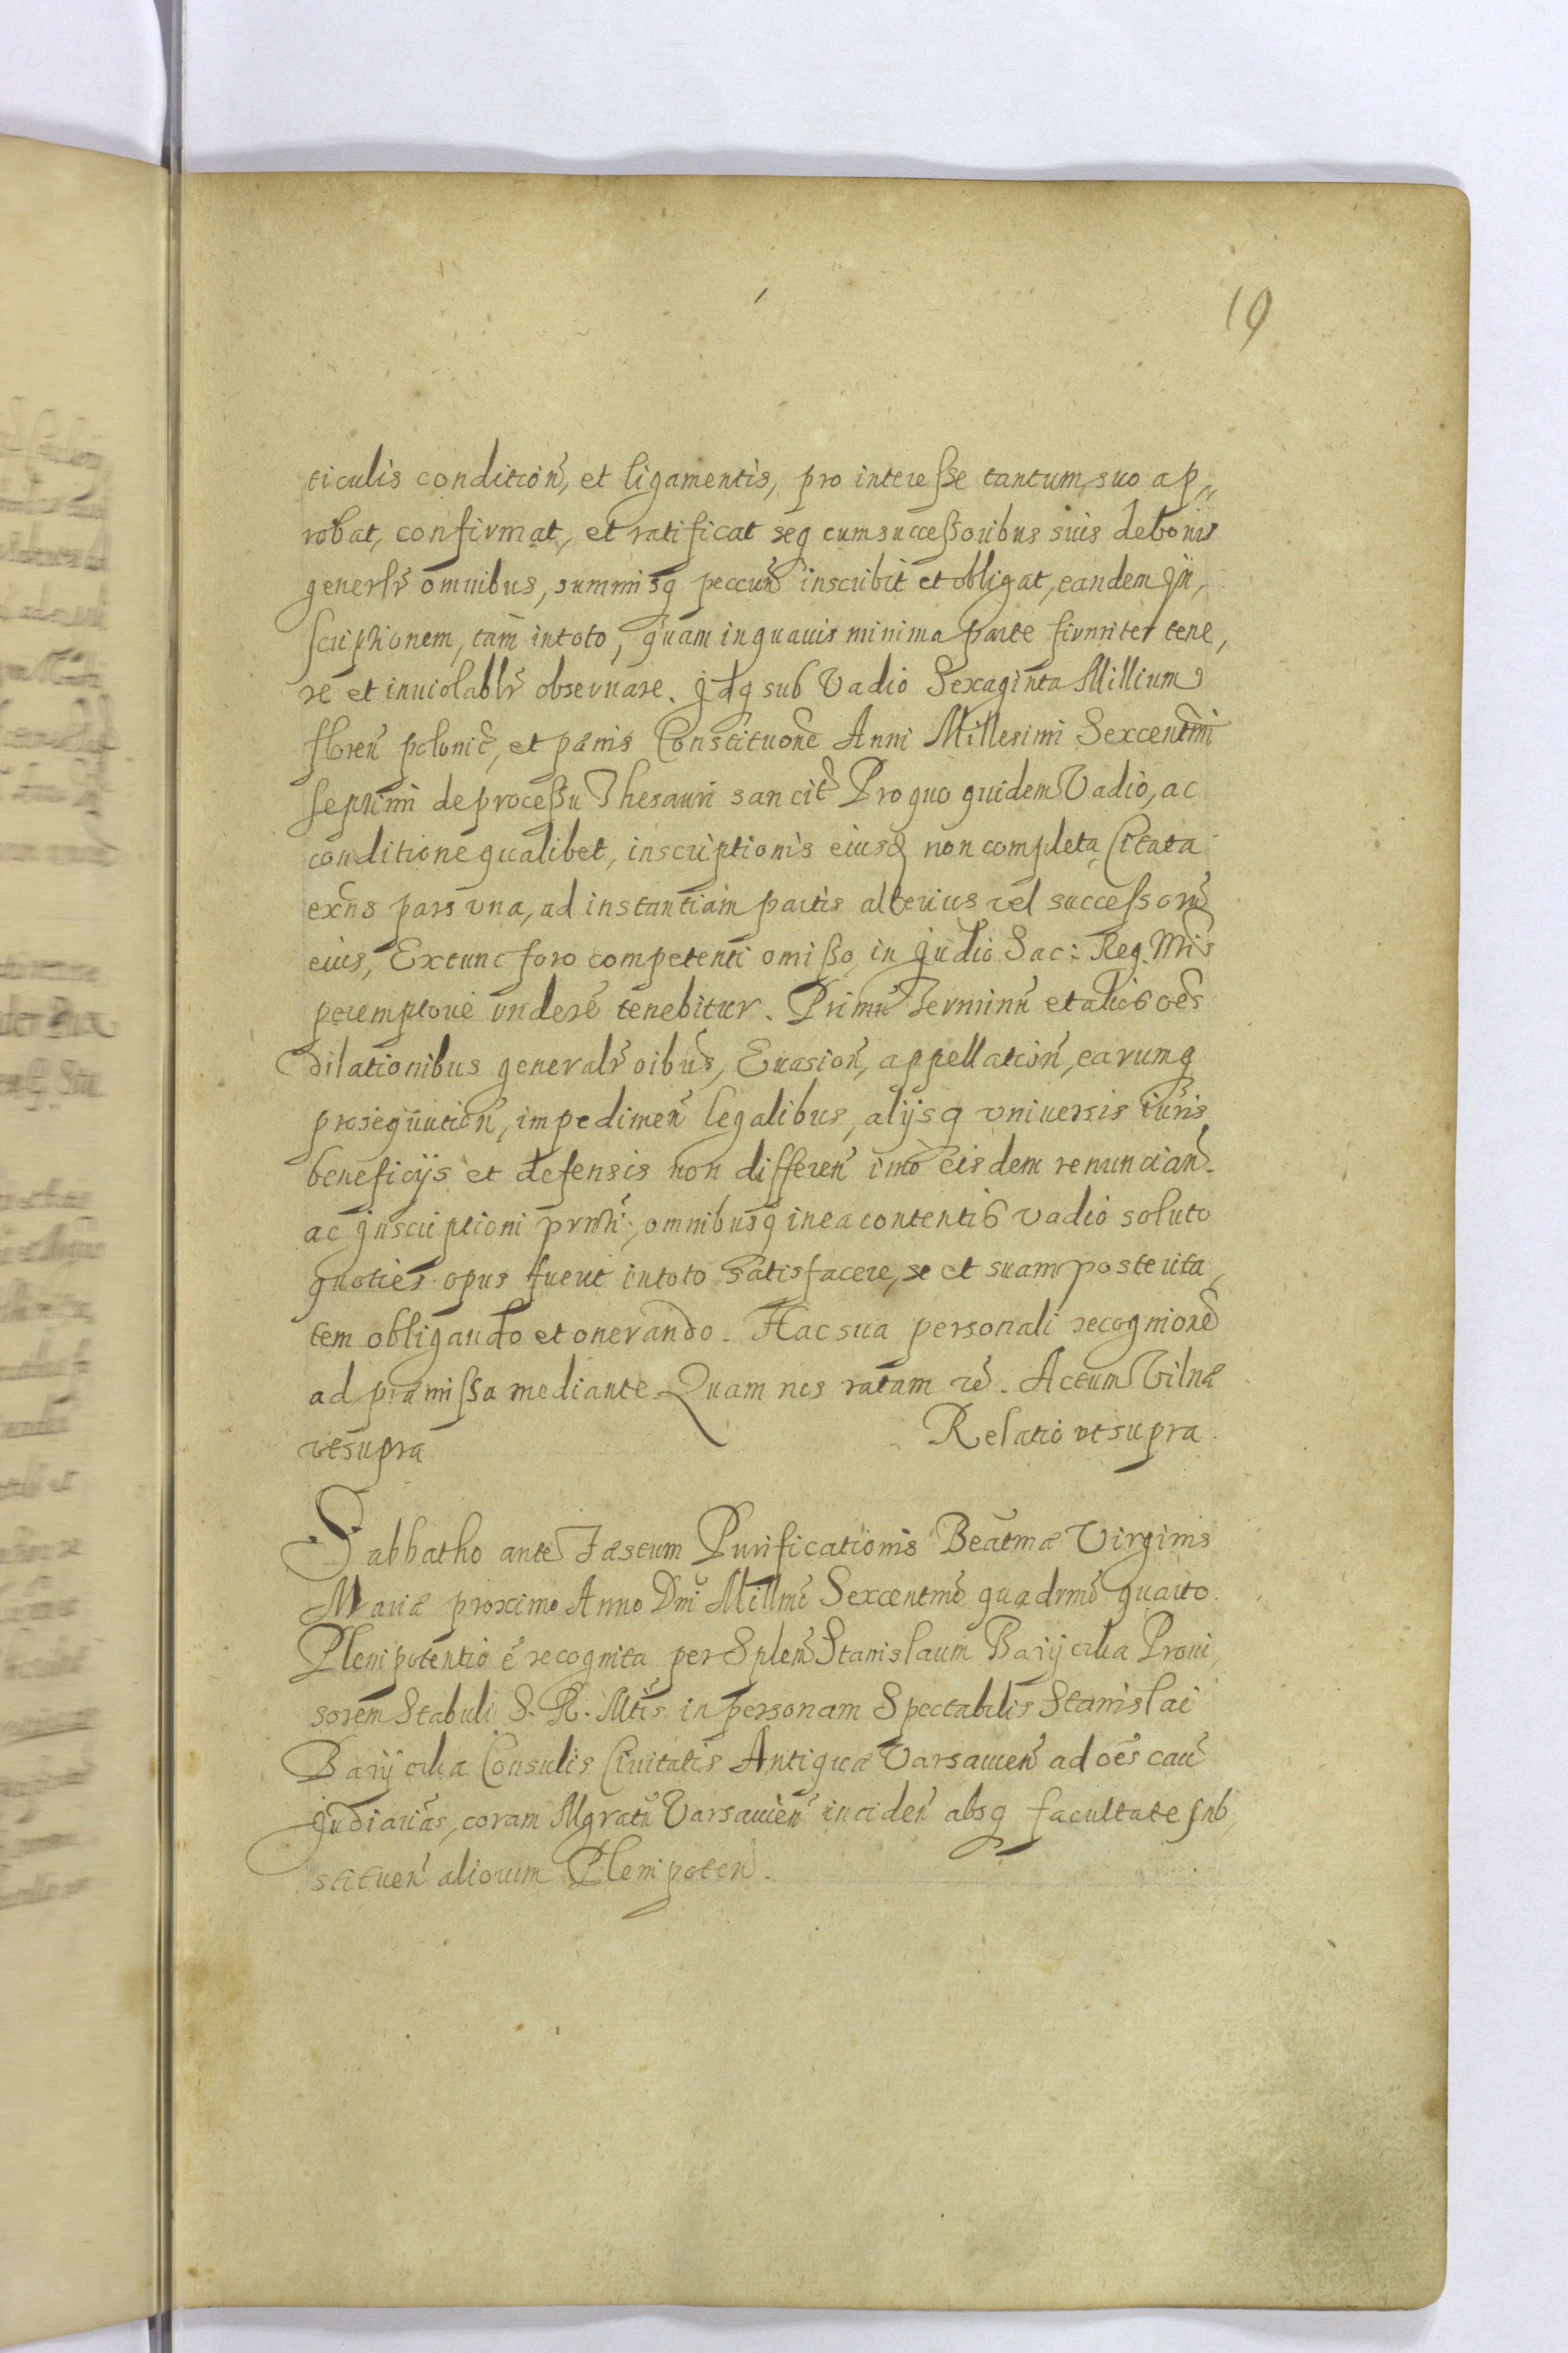 19
ticulis condition̄, et ligamentis, pro interesse tantum suo ap„
robat, confirmat, et ratificat seq cum successoribus suis de bonis
generlr̄ omnibus, summisq peccun̄ inscribit et obligat, eandem In,
scriptionem, tam̄ in toto, quam in quauis minima parte firmiter tene,
re et inuiolablr̄ obseruare. Idq sub Vadio Sexaginta Millium
floren̄ polonic̄, et pænis Constituone Anni Millesimi Sexcentmi
septimi de processu Thesauri sancit̄ Pro quo quidem Vadio, ac
conditione qualibet, inscriptionis eiusd non completa Citata
exn̄s pars vna, ad instantiam partis alterius vel successorū
eius, Extunc foro competenti omisso, in Judio Sac: Reg. Mtis
peremptorie rndere tenebitur. Primū Terminū et alios oēs
dilationibus generalr̄ oibus, Euasion̄, appellation̄, earumq
prosequution̄, impedimen̄ legalibus, alijsq vniuersis iuris
beneficijs et defensis non differen̄ imò eisdem renuncian̄.
ac Inscriptioni prn̄ti, omnibusq in ea contentis vadio soluto
quoties opus fuerit in toto satisfacere, se et suam posterita,
tem obligando et onerando. Hac sua personali recognione
ad præmissa mediante. Quam nos ratam re. Actum Vilnæ
vt supra Relatio vt supra.
Sabbatho ante Fæstum Purificationis Beatmæ Virginis
Mariæ proximo Anno Dnī Millmo Sexcentmo quadrmo quarto.
Plenipotentio ē recognita per Splen̄ Stanislaum Baryczka Proui,
sorem Stabuli S. R. Mtis in personam Spectabilis Stanislai
Baryczka Consulis Ciuitatis Antiquæ Varsauien̄ ad oēs cau̅
Judiarias, coram Mgratū Varsauien̄ inciden̄ absq facultate sub,
stituen̄ aliorum Plenipoten̄.